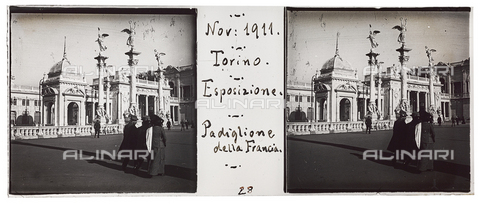 Nov: 1911.
Torino.
Esposizione.
Padiglione
della Francia.
28
ALINARI
ALINARI
ALINARI
ALINARI
ALINARI